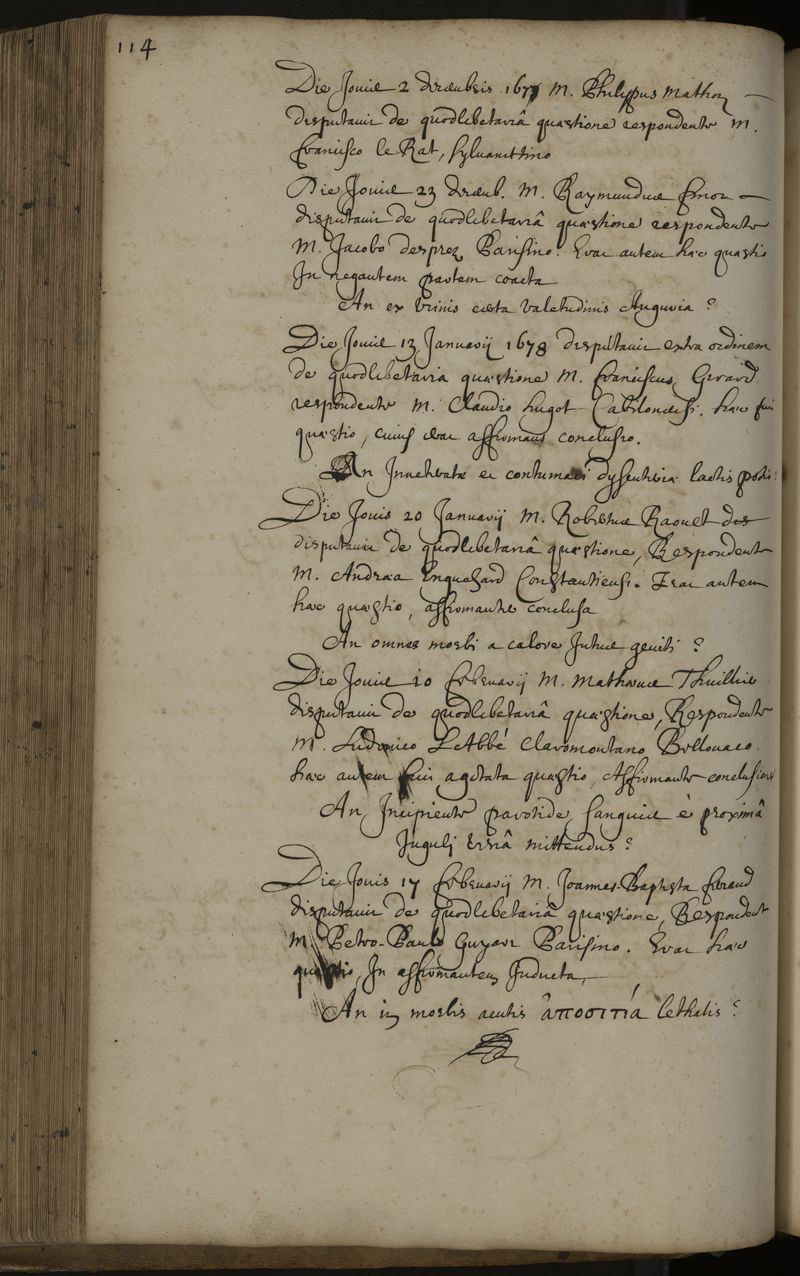 114
Die Jovis 2 decembris 1677 M. Philippus Mathon
disputavit de quodlibetariâ quæstione respondente M.
francisco le Rat, sylvanettino
Die Jovis 23 decemb. M. Raymundus finot
disputavit de quodlibetariâ quæstione respondente
M. Jacobo desprez Parisino. Erat autem hæc quæstio
In negantem partem coacta
An ex urinis certa valetudinis auguria ?
Die Jovis 13 Januarij 1678 disputavit extra ordinem
de quodlibetaria quæstione M. franciscus Gerard
respondente M. Claudio hugot Cabilonensi. hæc fuit
quæstio, cuius erat affirmans conclusio.
An Inveterata et contumaci dysenteria lactis potus
Die Jovis 20 Januarij M. Robertus Raouet des
disputavit de quodlibetariâ quæstione, Respondente
M. Andræa Enguehard Constantiensi. Erat autem
hæc quæstio, affirmante conclusa
An omnes morbi a calore Intus geniti ?
Die Jovis 10 februarij M. Mathæus Thuillier
disputavit de quodlibetariâ quæstione, Respondente
M. Ludovico L'Abbé Claromontano Bellovaco.
hæc autem fuit agitata quæstio, Affirmante conclusione
An Incipiente parotide, sanguis è proximâ
Juguli venâ mittendus ?
Die Jovis 17 februarij M. Joannes-Baptista ferand
disputavit de quodlibetariâ quæstione, Respondente
M. Petro-Paulo Guyart Parisino. Erat hæc
quæstio, In affirmantem Inducta,
An in morbis acutis ἀποσιτία lethalis ?